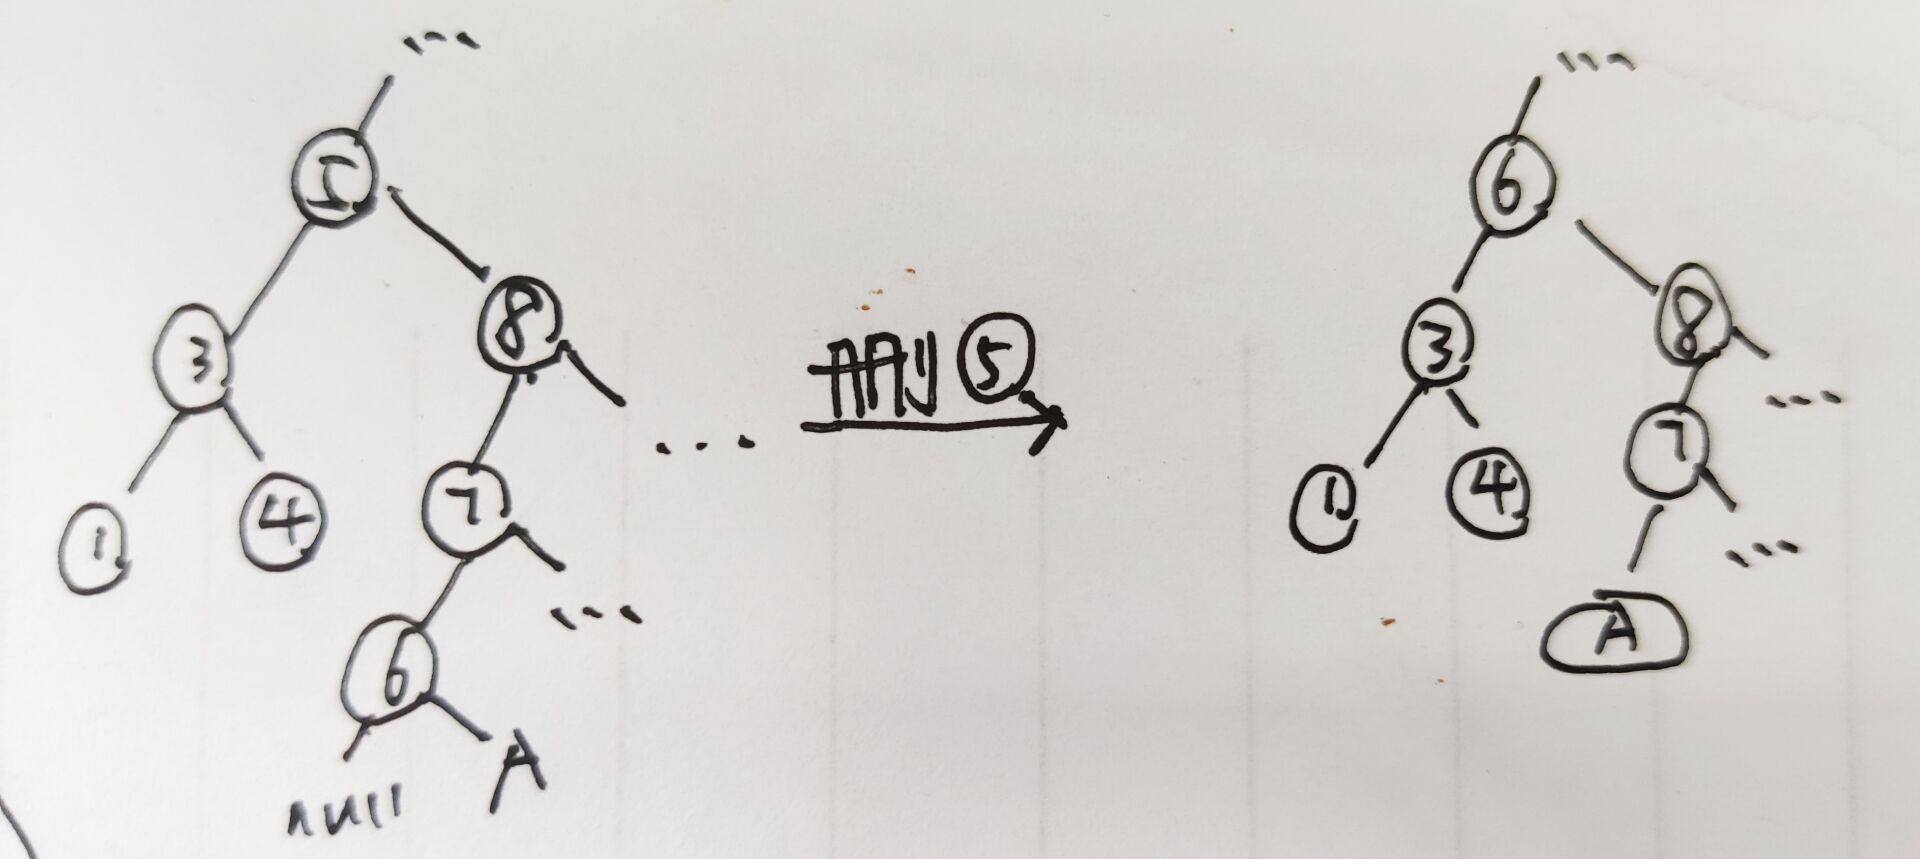 ...
5
3
8
1
4
7
...
6
...
null
A
删 5
...
6
3
8
1
4
7
...
...
A